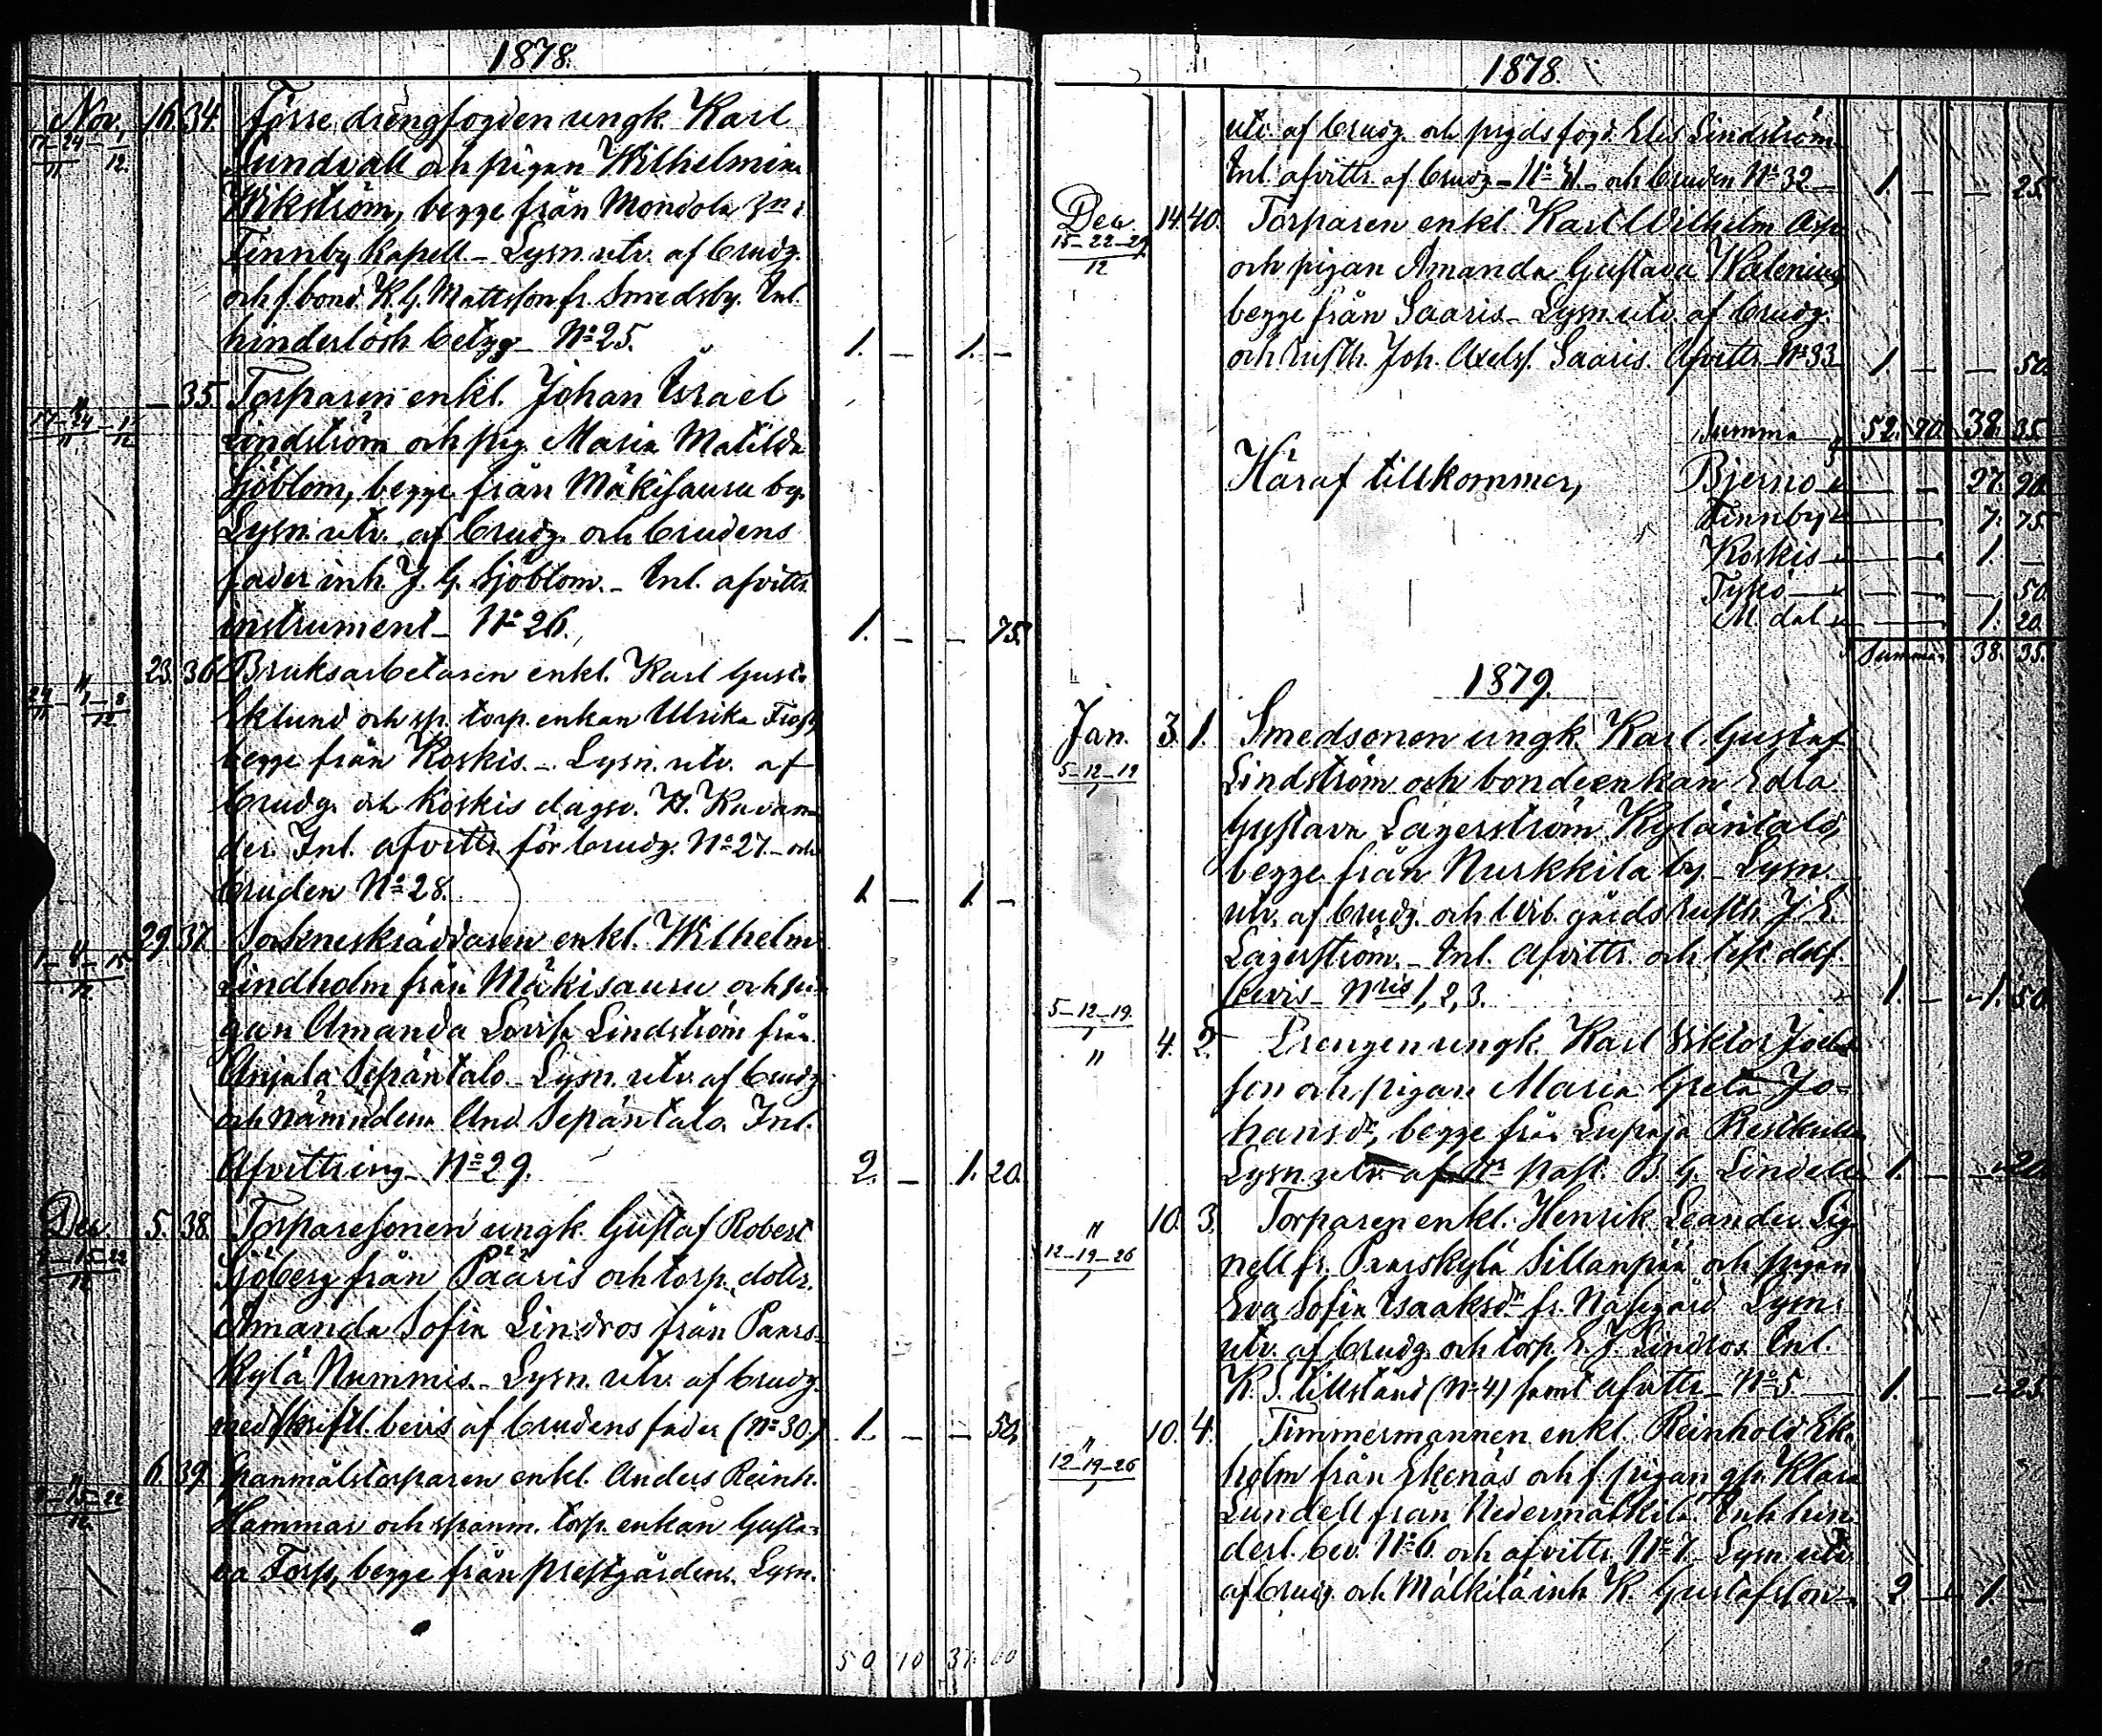 1878.
Nov. 16. 34. Förre drengfogden ungk. Karl
17-24 - 1
11 12. Sundvall och pigan Wilhelmina
Wikström, begge från Mondola i
Finnby Kapell. - Lysn. utv. af brudg.
och f. bond. K. G. Mattsson fr. Smedsby. Inl.
hinderlösh. betyg - No 25. 1. - 1. -
" - 35. Torparen enkl. Johan Israel
17-24 - 1
11 12 Lindström och pig. Maria Matilda
Sjöblom, begge från Mäkisauru by.
Lysn. utv. af brudg. och brudens
fader inh. J. G. Sjöblom. - Inl. afvittr.
instrument - No 26. 1. - - 75.
" 23. 36. Bruksarbetaren enkl. Karl Gust.
24 - 1-8
11 12 Eklund och sp. torp. enkan Ulrika
begge från Koskis. - Lysn. utv. af
brudg. och Koskis dagsv. H. Kavan-
der. Inl. afvittr. för brudg. No 27. - och
bruden No 28. 1 - 1. -
" 29. 37. Sockneskräddaren enkl. Wilhelm
1-8-15
12 Lindholm från Mäkisauru och pi-
gan Amanda Lovisa Lindström från
Anjala Sepäntalo. - Lysn. utv. af brudg.
och nämndem. And. Sepäntalo. Inl.
Afvittring - No 29. 2. - 1. 20.
Dec. 5. 38. Torparesonen ungk. Gustaf Robert
8-15-22
12 Sjöberg från Pääris och torp. dottr.
Amanda Sofia Lindros från Paars-
kylä Nummis. - Lysn. utv. af brudg.
med skriftl. bevis af brudens fader (No 30.) 1. - - 50.
" 6. 39. Spanmålstorparen enkl. Anders Reinh.
8-15-22
12. Hammar och spanm. torp. enkan Gusta-
va Torp, begge från prestgårdens. Lysn.
50 10 37. 60
1878.
utv. af brudg. och prgdsfogd. Elis Lindström.
Inl. afvittr. af brudg. - No 31. - och bruden No 32. - 1. - - 25.
Dec. 14. 40. Torparen enkl. Karl Wilhelm
15-22-29
12 och pigan Amanda Gustava Walenius,
begge från Saaris. - Lysn. utv. af brudg.
och rusth. Joh. Axelss. Saaris. Afvittr. No 33. 1 - - 50.
Summa 52. 70. 38. 35.
Häraf tillkommer, Bjerno - - 27. 90.
Finnby 7. 75.
Koskis 1. -
Tykö - 50.
M. dal 1. 20.
Summa 38. 35.
1879.
Jan. 3. 1. Smedsonen ungk. Karl Gustaf
5-12-19
1 Lindström och bondeenkan Edla
Gustava Lagerström Kyläntalo,
begge från Nurkkila by. - Lysn.
utv. af brudg. och Urb. gårds rusth. J. E.
Lagerström. - Inl. Afvittr. och
bevis - Nris 1, 2, 3. 1. - 1. 50.
5-12-19.
1
" 4. 2. Drengen ungk. Karl Viktor Joels-
son och pigan Maria Greta Jo-
hansdr, begge från Lupaja
Lysn. utv. af past. B. G. Lindell 1. - - 20.
" 10. 3. Torparen enkl. Henrik Leander Sig-
12-19-26
1 nell fr. Paarskylä Sillanpää och pigan
Eva Sofia Isaksdr fr. Näsegård Lysn.
utv. af brudg. och torp. E. J. Lindros. Inl.
K. S. tillstånd (No 4) samt afvittr. - No 5. 1. - - 25.
" 10. 4. Timmermannen enkl. Reinhold Ek-
12-19-26
1 holm från Ekenäs och f. pigan Klara
Lundell från Nedermälkilä. Inh. hin-
derl. bev. No 6. och afvittr. No 7. - Lysn. utv.
af brudg. och Mälkilä inh. K. Gustafsson. - 2. - 1. -